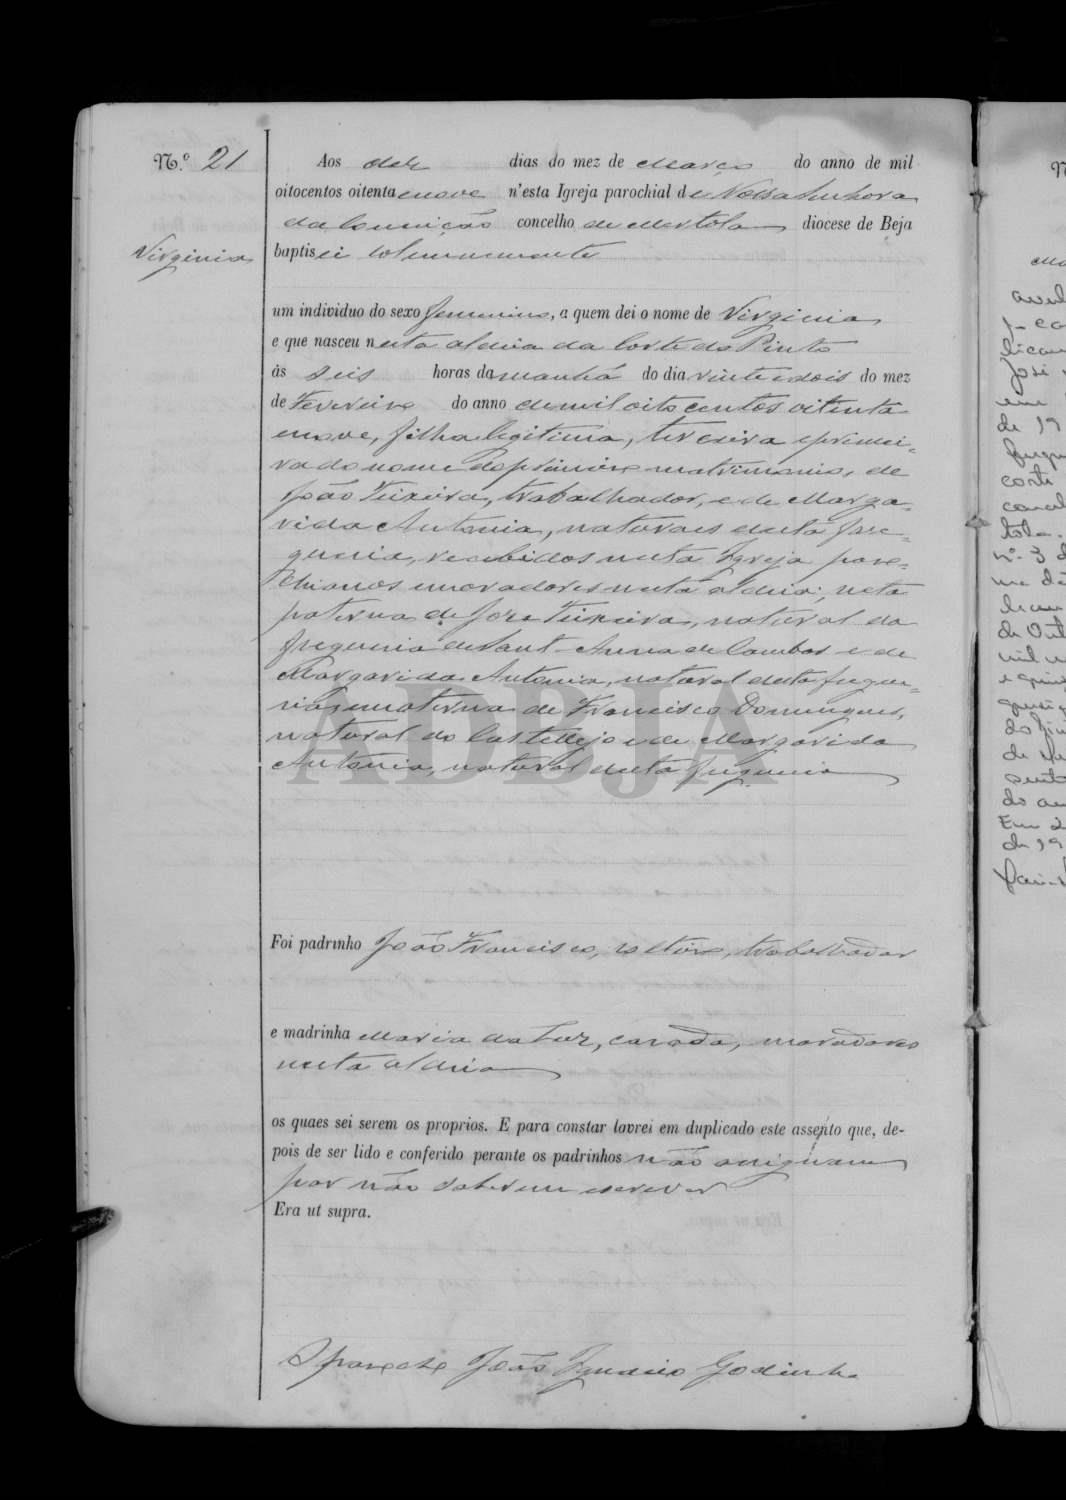 N.º 21
Virginia
Aos dez dias do mez de Março do anno de mil
oitocentos oitenta e nove n'esta Igreja parochial de Nossa Senhora
da Conceição concelho de Mertola diocese de Beja
baptisei solemnemente
um individuo do sexo femenino, a quem dei o nome de Virginia
e que nasceu nesta aldeia da Corte do Pinto
ás seis horas da manhã do dia vinte e dois do mez
de Fevereiro do anno de mil oito centos oitenta
e nove, filha legitima, terceira e primei-
ra do nome do primeiro matrimonio, de
João Teixeira, trabalhador, e de Marga-
rida Antonia, naturaes desta fre-
guesia, recebidos nesta Igreja paro-
chianos e moradores nesta aldeia; neta
paterna de José Teixeira, natural da
freguesia de Sant-Anna de Cambas e de
Margarida Antonia, natural desta fregue-
sia, e materna de Francisco Domingues,
natural do Castellejo e de Margarida
Antonia, natural desta freguesia
Foi padrinho João Francisco, solteiro, trabalhador
e madrinha Maria da Luz, casada, moradores
nesta aldeia
os quaes sei serem os proprios. E para constar lavrei em duplicado este assento que, de-
pois de ser lido e conferido perante os padrinhos não assignam
por não saberem escrever
Era ut supra.
O parocho João Ignacio Godinho
ADBJA